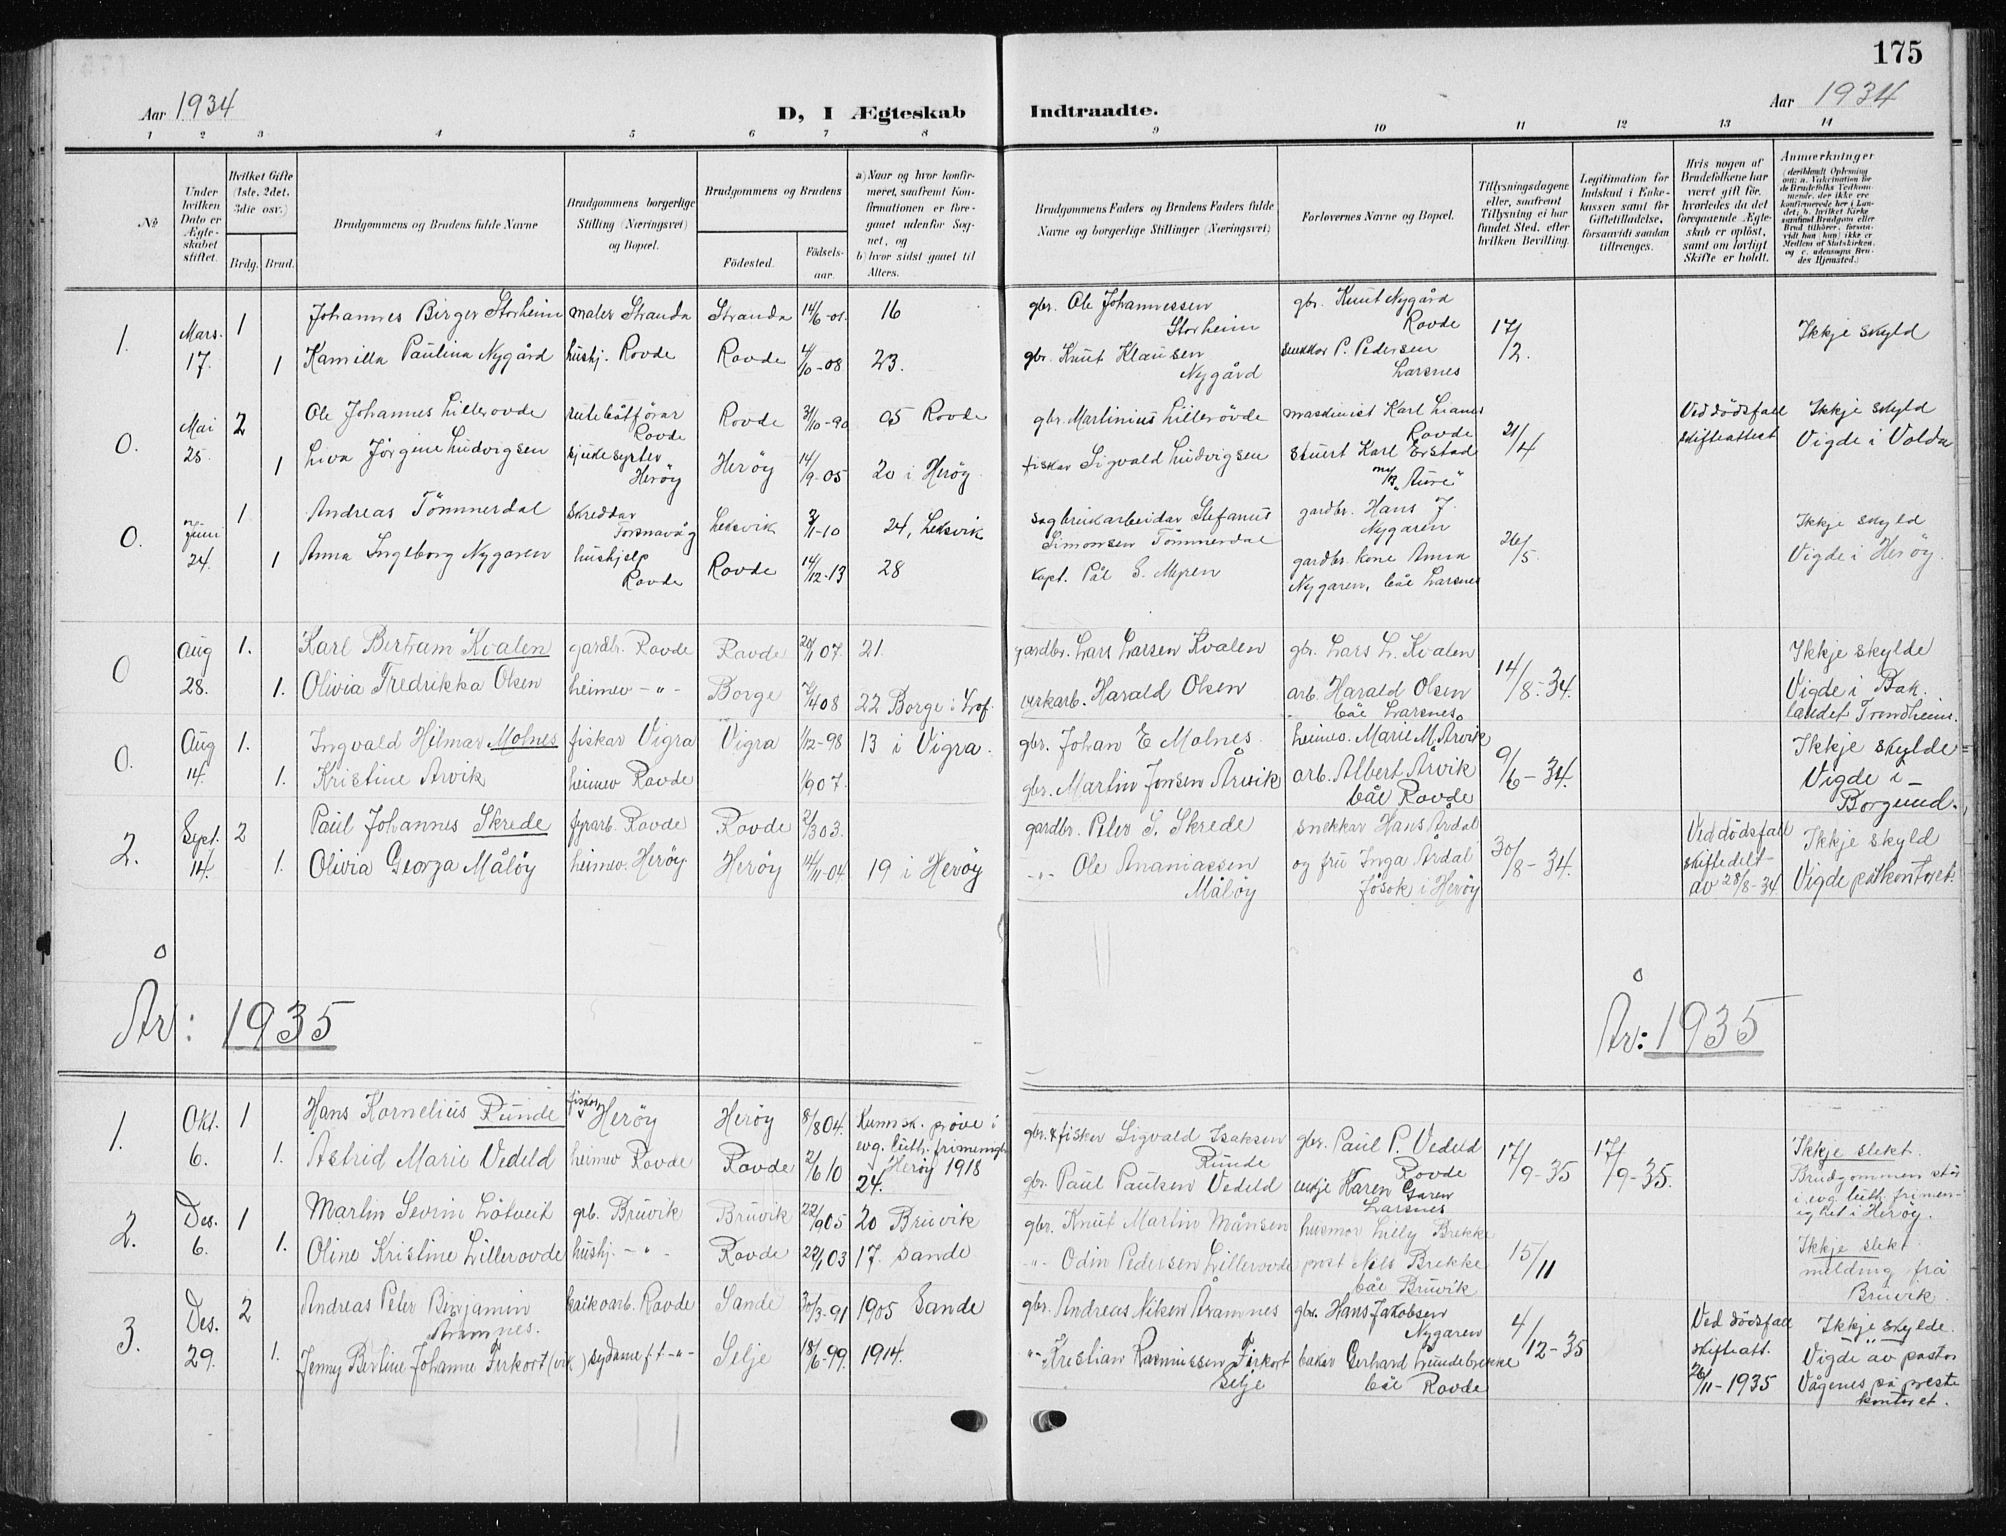 175
Aar 1934
D, I Ægteskab Indtraadte.
Aar 1934
1 2 3 4 5 6 7 8 9 10 11 12 13 14
№
Under hvilken Dato er Ægteskabet stiftet.
Hvilket Gifte (1ste, 2det, 3die osv.)
Brdg. Brud.
Brudgommens og Brudens fulde Navne
Brudgommens borgerlige Stilling (Næringsvei) og Bopæl.
Brudgommens og Brudens
Fødested.
Fødselsaar.
a) Naar og hvor konfirmeret, saafremt Konfirmationen er foregaaet udenfor Sognet, og
b) hvor sidst gaaet til Alters.
Brudgommens Faders og Brudens Faders fulde Navne og borgerlige Stillinger (Næringsvei)
Forlovernes Navne og Bopæl.
Tillysningsdagene eller, saafremt Tillysning ei har fundet Sted, efter hvilken Bevilling.
Legitimation for Indskud i Enkekassen samt for Giftetilladelse, forsaavidt saadan tiltrænges.
Hvis nogen af Brudefolkene har været gift før, hvorledes da det foregaaende Ægteskab er opløst, samt om lovligt Skifte er holdt.
Anmærkninger
(deriblandt Oplysning om: a. Vakcination for de Brudefolks Vedkommende, der ikke ere konfirmerede her i Landet; b. hvilket Kirkesamfund Brudgom eller Brud tilhører, forsaavidt han (hun) ikke er Medlem af Statskirken, og c. udensogns Brudes Hjemsted.)
1. Mars. 17. 1 Johannes Birger Storheim maler Stranda Stranda 14/6-01. 16 gbr. Ole Johannessen Storheim gbr. Knut Nygård Rovde 17/2. Ikkje skyld
1 Kamilla Paulina Nygård hushj. Rovde Rovde 4/10-08 23. gbr. Knut Klausen Nygård snekkar P. Pedersen Larsnes
0. Mai 25. 2 Ole Johannes Lillerovde rutebåtförar Rovde Rovde 31/10-90 05 Rovde gbr. Martinius Lillerövde maskinist Karl Lianes Rovde 21/4 Ved dödsfall skifteattest Ikkje skyld Vigde i Volda
1 Lina Jörgine Ludvigsen sjukesyster Heröy Heröy 14/9-05 20 i Heröy fiskar Sigvald Ludvigsen stuert Karl Erstad m/k "Aure"
0. Juni 24. 1 Andreas Tömmerdal Skreddar Fosnavåg Leksvik 3/11-10 24, Leksvik Sagbrukarbeidar Stefanus Simonsen Tömmerdal gardbr. Hans J. Nygaren 26/5 Ikkje skyld Vigde i Heröy.
1 Anna Ingeborg Nygaren hushjelp Rovde Rovde 14/12-13 28 Kapt. Pål S. Myren gardbr. kone Anna Nygaren, båe Larsnes
0 Aug 28. 1. Karl Bertram Kvalen gardbr. Rovde Rovde 20/1 07. 21. gardbr. Lars Larsen Kvalen gbr. Lars L. Kvalen 14/8-34. Ikkje skylde Vigde i Baklandet Trondheim.
1. Olivia Fredrikka Olsen heimev -"- Borge 7/4 08 22 Borge i Lof. verkarb. Harald Olsen arb. Harald Olsen båe Larsnes.
0. Aug 14. 1. Ingvald Hilmar Molnes fiskar Vigra Vigra 1/12-98 13 i Vigra. gbr. Johan E Molnes. heimev. Marie M. Årvik 9/6-34. Ikkje skylde Vigde i Borgund.
1. Kristine Årvik heimev Rovde 1/9 07. gbr. Martin Jonsen Årvik arb. Albert Årvik båe Rovde
2. Sept. 14. 2 Paul Johannes Skrede fyrarb. Rovde Rovde 2/3 03. gardbr. Peter S. Skrede snekkar Hans Årdal 30/8-34. Ved dödsfall skiftedelt av 28/8-34. Ikkje skyld Vigde på kontoret.
1. Olivia Georga Målöy heimev. Heröy. Heröy 14/11-04 19 i Heröy -"- Ole Ananiassen Målöy og fru Inga Årdal Jösok i Heröy
År: 1935
År: 1935
1. Okt. 6. 1 Hans Kornelius Runde fiskar Heröy Heröy 8/8 04. Kunnsk. pröve i evg. luth. frimenigh. Heröy 1918 gbr. & fisker Sigvald Isaksen Runde gbr. Paul P. Vedeld Rovde 17/9-35 17/9-35. Ikkje slekt. Brudgommen står i evg. luth. frimenighet i Heröy.
1. Astrid Marie Vedeld heimev Rovde Rovde 2/6 10 24. gbr. Paul Paulsen Vedeld enkje Karen Garen Larsnes
2. Des. 6. 1 Martin Severin Lötveit grb. Bruvik Bruvik 22/9 05 20 Bruvik gbr. Knut Martin Månsen husmor Lilly Brekke 15/11 Ikkje slekt melding frå Bruvik.
1. Oline Kristine Lillerovde hushj. -"- Rovde 22/1 03 17. Sande -"- Odin Pedersen Lillerovde prest Nils Brekke båe Bruvik
3. Des. 29. 2 Andreas Peter Benjamin Åramnes. kaikoarb. Rovde Sande 30/3-91 1905 Sande gbr. Andreas Nilsen Åramnes gbr. Hans Jakobsen Nygaren 4/12-35 Ved dödsfall skifteatt. 26/11-1935 Ikkje skylde. Vigde av pastor Vågenes på prestekontoret.
1. Jenny Berline Johanne Firkort (vik) sydame f.t. -"- Selje 18/6-99. 1914. -"- Kristian Rasmussen Firkort Selje bakar Gerhard Grundebrekke båe Rovde